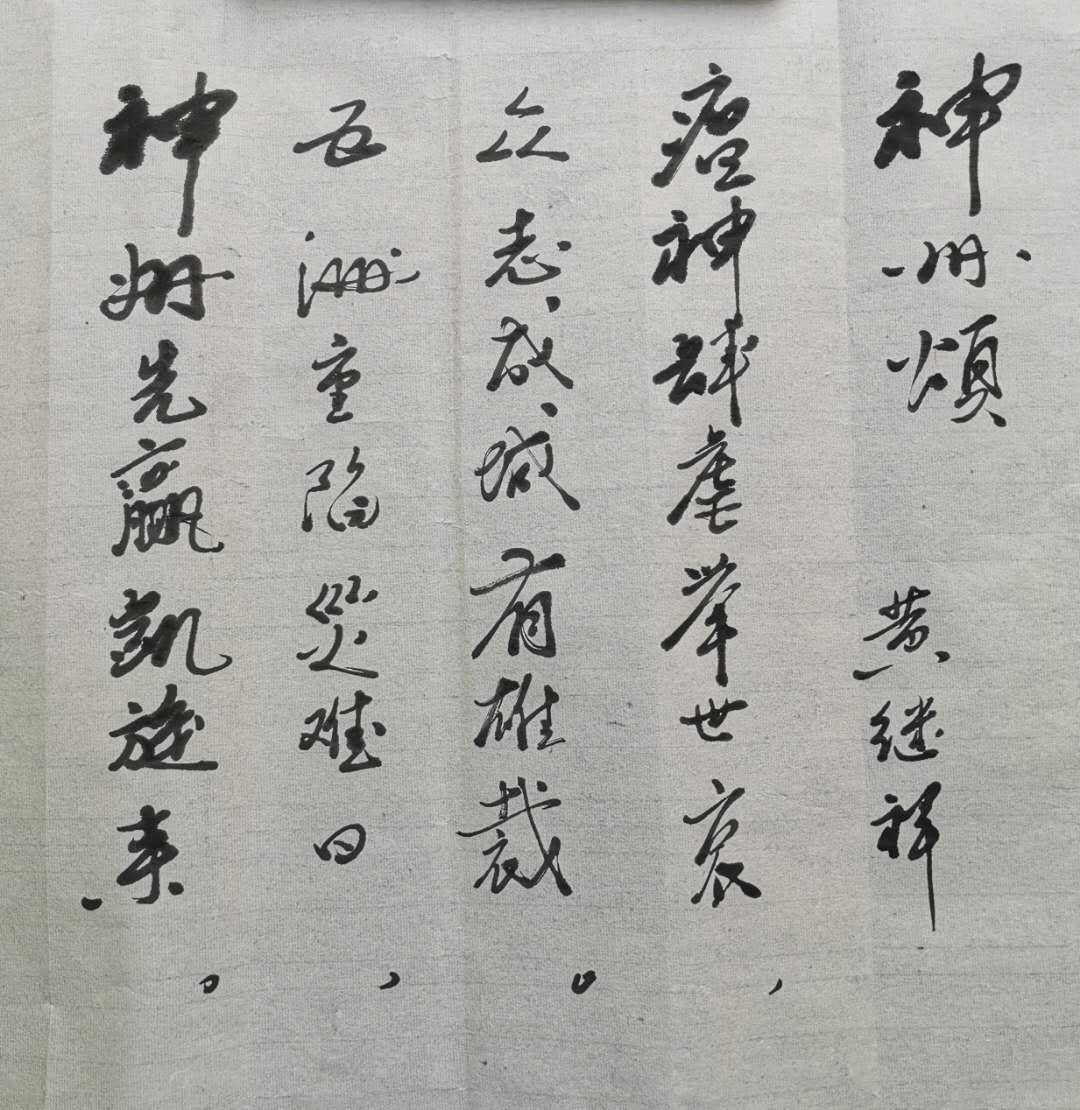 神州颂 黄继祥
瘟神肆虐举世哀，
众志成城有雄裁。
五洲重陷災难日，
神州先赢凯旋来。